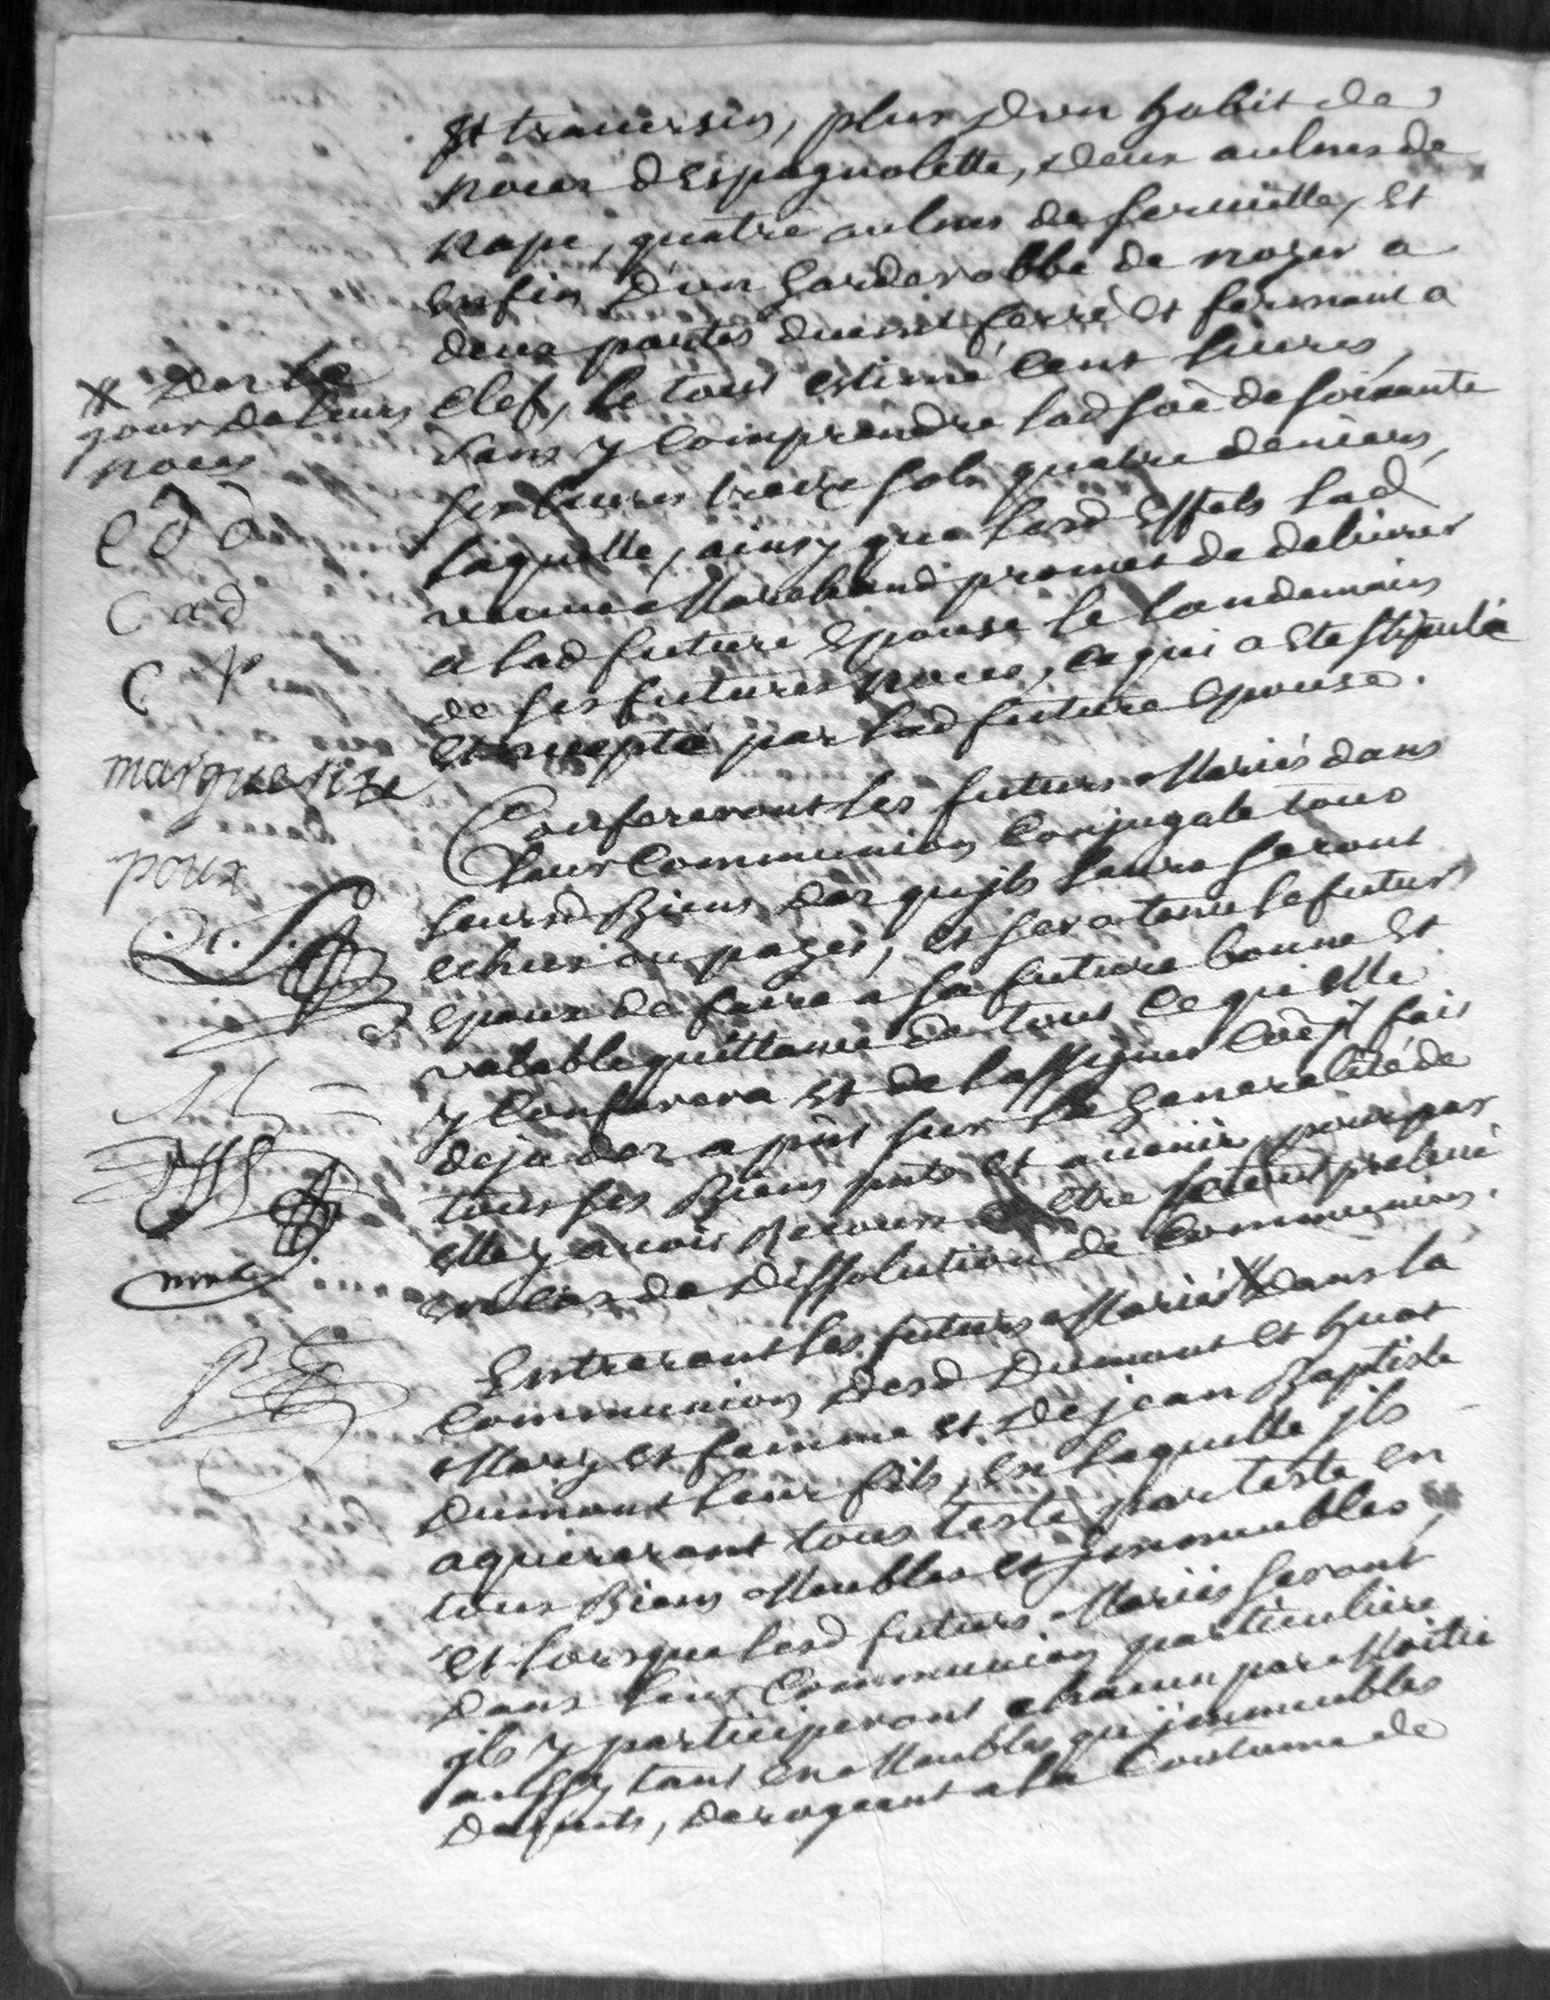 Et trauersin, plus d'un habit de
noces d'Espagnolette, deux aulnes de
nape, quatre aulnes de seruiette, et
Enfin d'un Garderobbe de noyer a
deux portes duemt ferré et fermant a
clef, le tout estimé cent liures,
sans y comprendre lad soe de soixante
six liures treize sols quatre deniers,
laquelle, ainsy que lesd Effets lad
veuve Marchand promet de deliurer
a lad future Epouse le landemain
de ses futures noces, ce qui a Eté stipulé
et accepté par lad future Epouse.
Confereront les futurs Mariés dans
leur Communion Conjugale tous
leursd Biens dez qu'jls leurs seront
echus ou payés, et sera tenu le futur
Epoux de faire a sa future bonne et
valable quittance de tout ce qu'elle
y conferera et de l'assigner coe jl fait
deja dez a pnt sur la Generalité de
tous ses Biens pnts et auenir, pour par
elle y auoir Recours et etre le tout prelevé
en cas de Dissolution de Communion.
Entreront les futurs Mariés X dans la
Communion desd Dumont et huot
Mary et femme et de jean Baptiste
Dumont leur fils, en laquelle jls
aquereront tous teste par teste en
tous Biens Meubles et jmmeubles,
et lorsque lesd futurs Mariés seront
dans leur Communion particuliere
jls y participeront chacun par Moitié
aussy tant en Meubles qu'jmmeubles
d'aquets, derogeant a la Coutume de
X dez le
jour de leurs
noces
C D D
C a d
C P
marguerite
poux